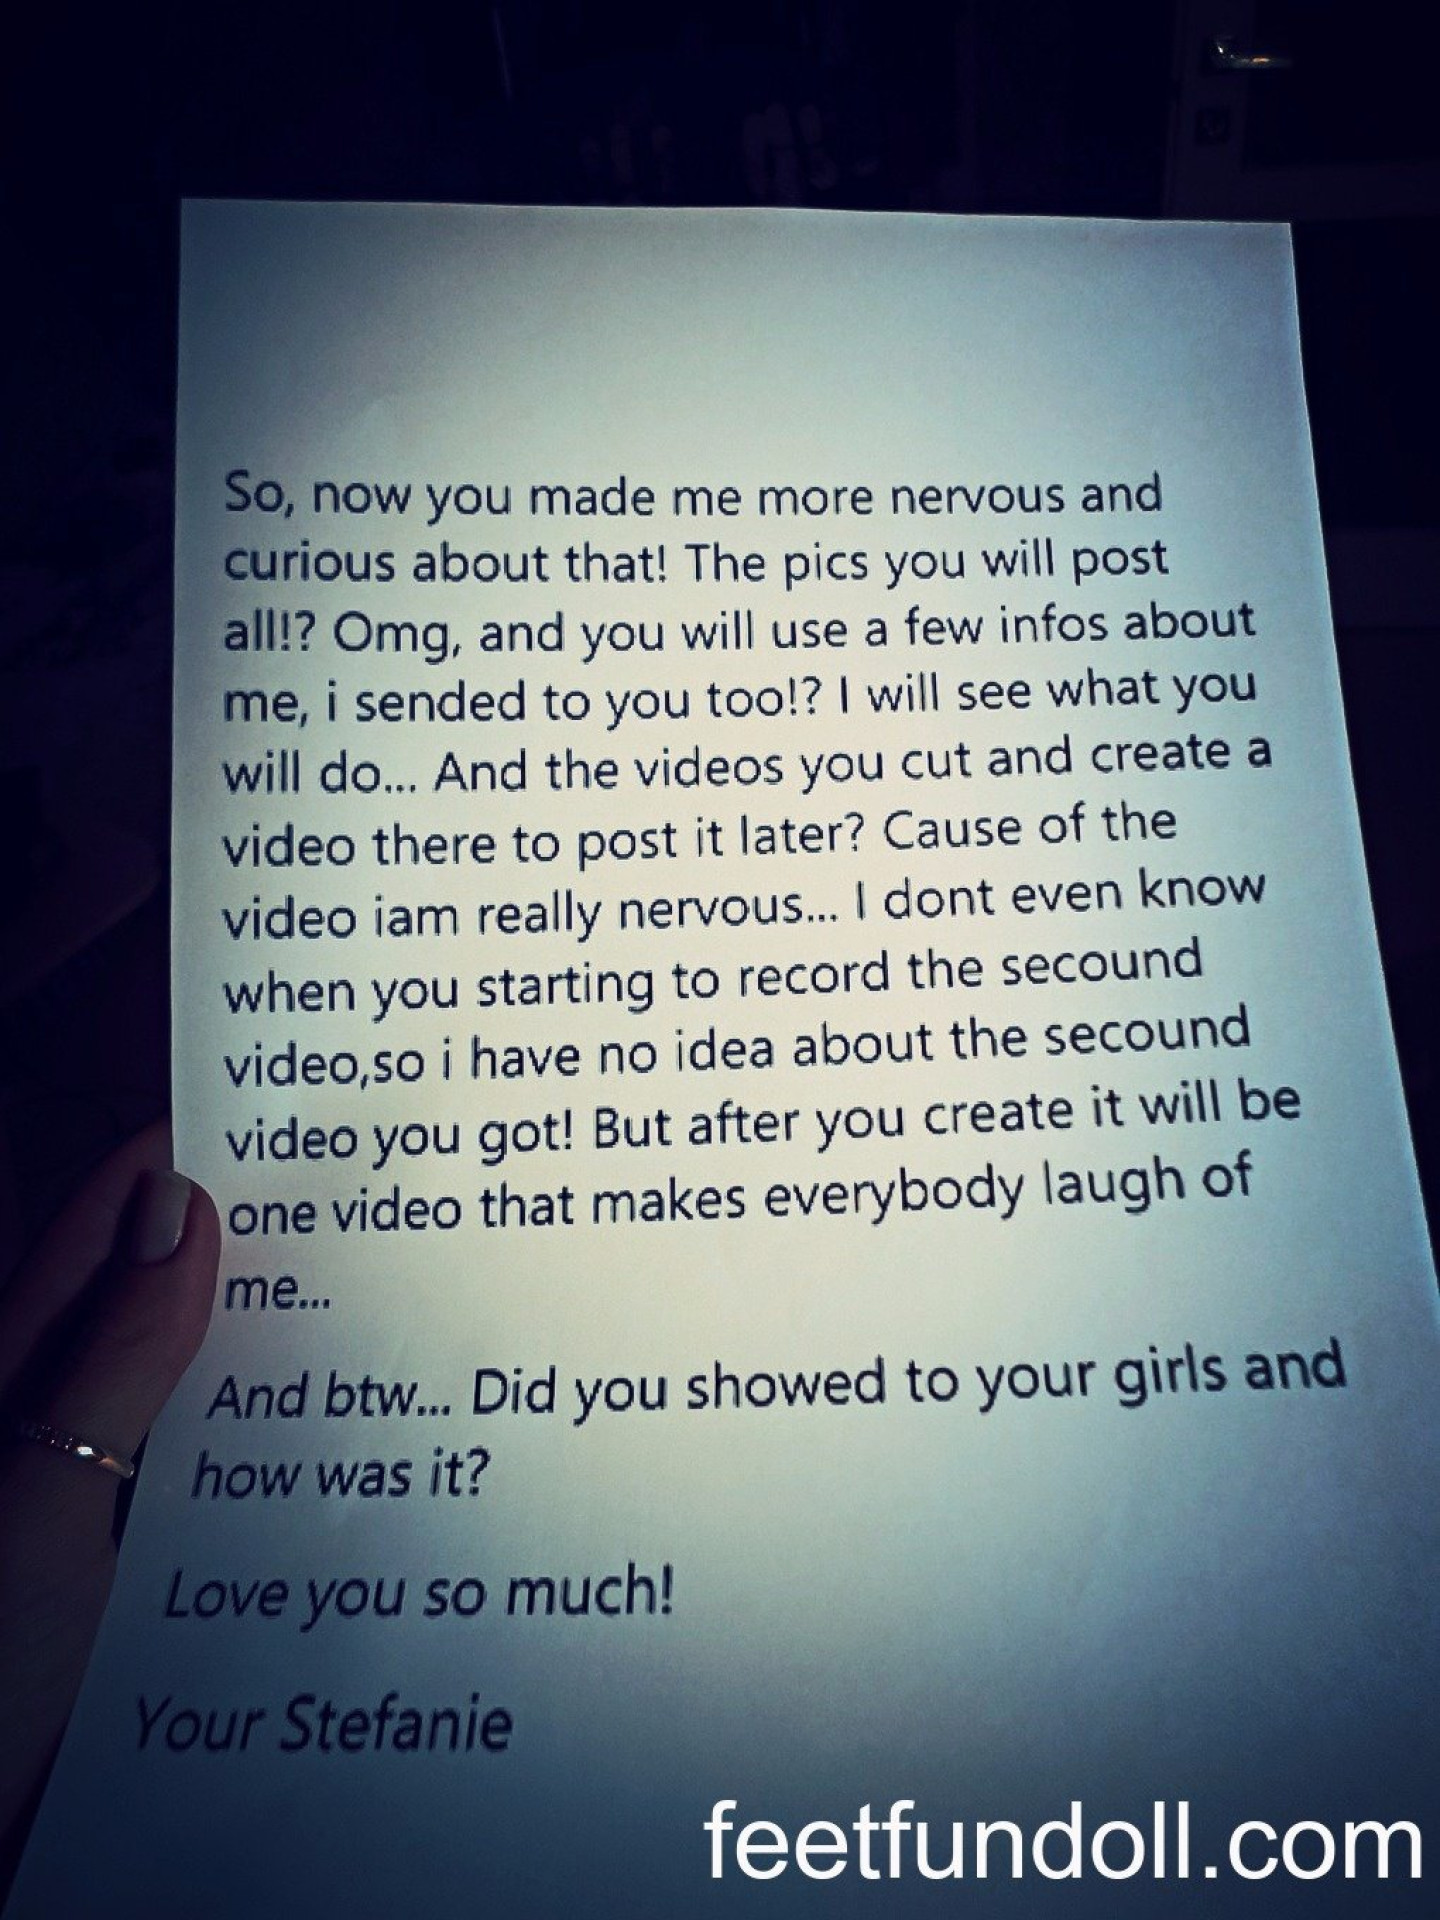 So, now you made me more nervous and
curious about that! The pics you will post
all!? Omg, and you will use a few infos about
me, i sended to you too!? I will see what you
will do... And the videos you cut and create a
video there to post it later? Cause of the
video iam really nervous... I dont even know
when you starting to record the secound
video,so i have no idea about the secound
video you got! But after you create it will be
one video that makes everybody laugh of
me...
And btw... Did you showed to your girls and
how was it?
Love you so much!
Your Stefanie
feetfundoll.com